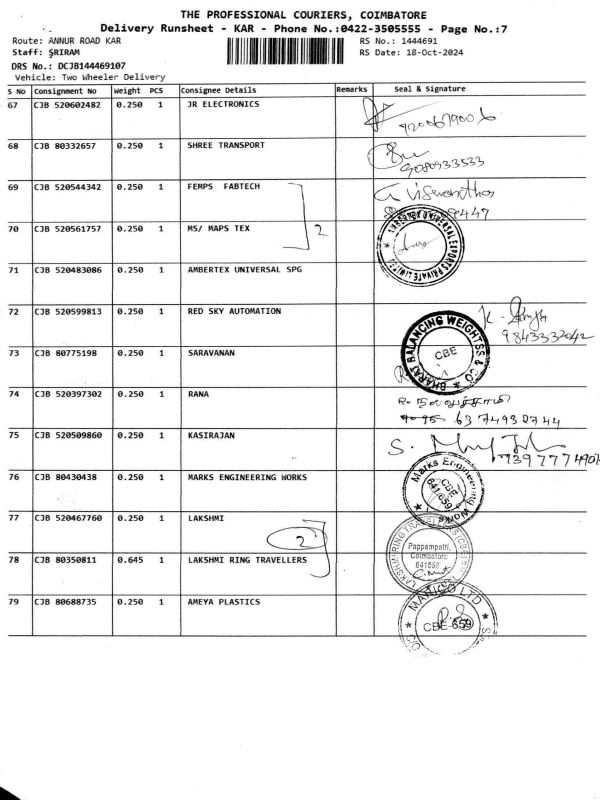 THE PROFESSIONAL COURIERS, COIMBATORE
Delivery Runsheet - KAR - Phone No.:0422-3505555 - Page No.:7
Route: ANNUR ROAD KAR
RS No.: 1444691
Staff: SRIRAM
RS Date: 18-Oct-2024
DRS No.: DCJB144469107
Vehicle: Two Wheeler Delivery
S No Consignment No Weight PCS Consignee Details Remarks Seal & Signature
67 CJB 520602482 0.250 1 JR ELECTRONICS
68 CJB 80332657 0.250 1 SHREE TRANSPORT
9080933533
69 CJB 520544342 0.250 1 FEMPS FABTECH
70 CJB 520561757 0.250 1 MS/ MAPS TEX
2
71 CJB 520483086 0.250 1 AMBERTEX UNIVERSAL SPG
72 CJB 520599813 0.250 1 RED SKY AUTOMATION
9843332042
73 CJB 80775198 0.250 1 SARAVANAN
BHARAT BALANCING WEIGHTSS & CO
CBE
74 CJB 520397302 0.250 1 RANA
63 74932744
75 CJB 520509860 0.250 1 KASIRAJAN
76 CJB 80430438 0.250 1 MARKS ENGINEERING WORKS
Marks Engineering Works
CBE
641 659
77 CJB 520467760 0.250 1 LAKSHMI
2
78 CJB 80350811 0.645 1 LAKSHMI RING TRAVELLERS
Pappampatti,
Coimbatore
641659
79 CJB 80688735 0.250 1 AMEYA PLASTICS
MARICO LTD
CBE-659
C/O